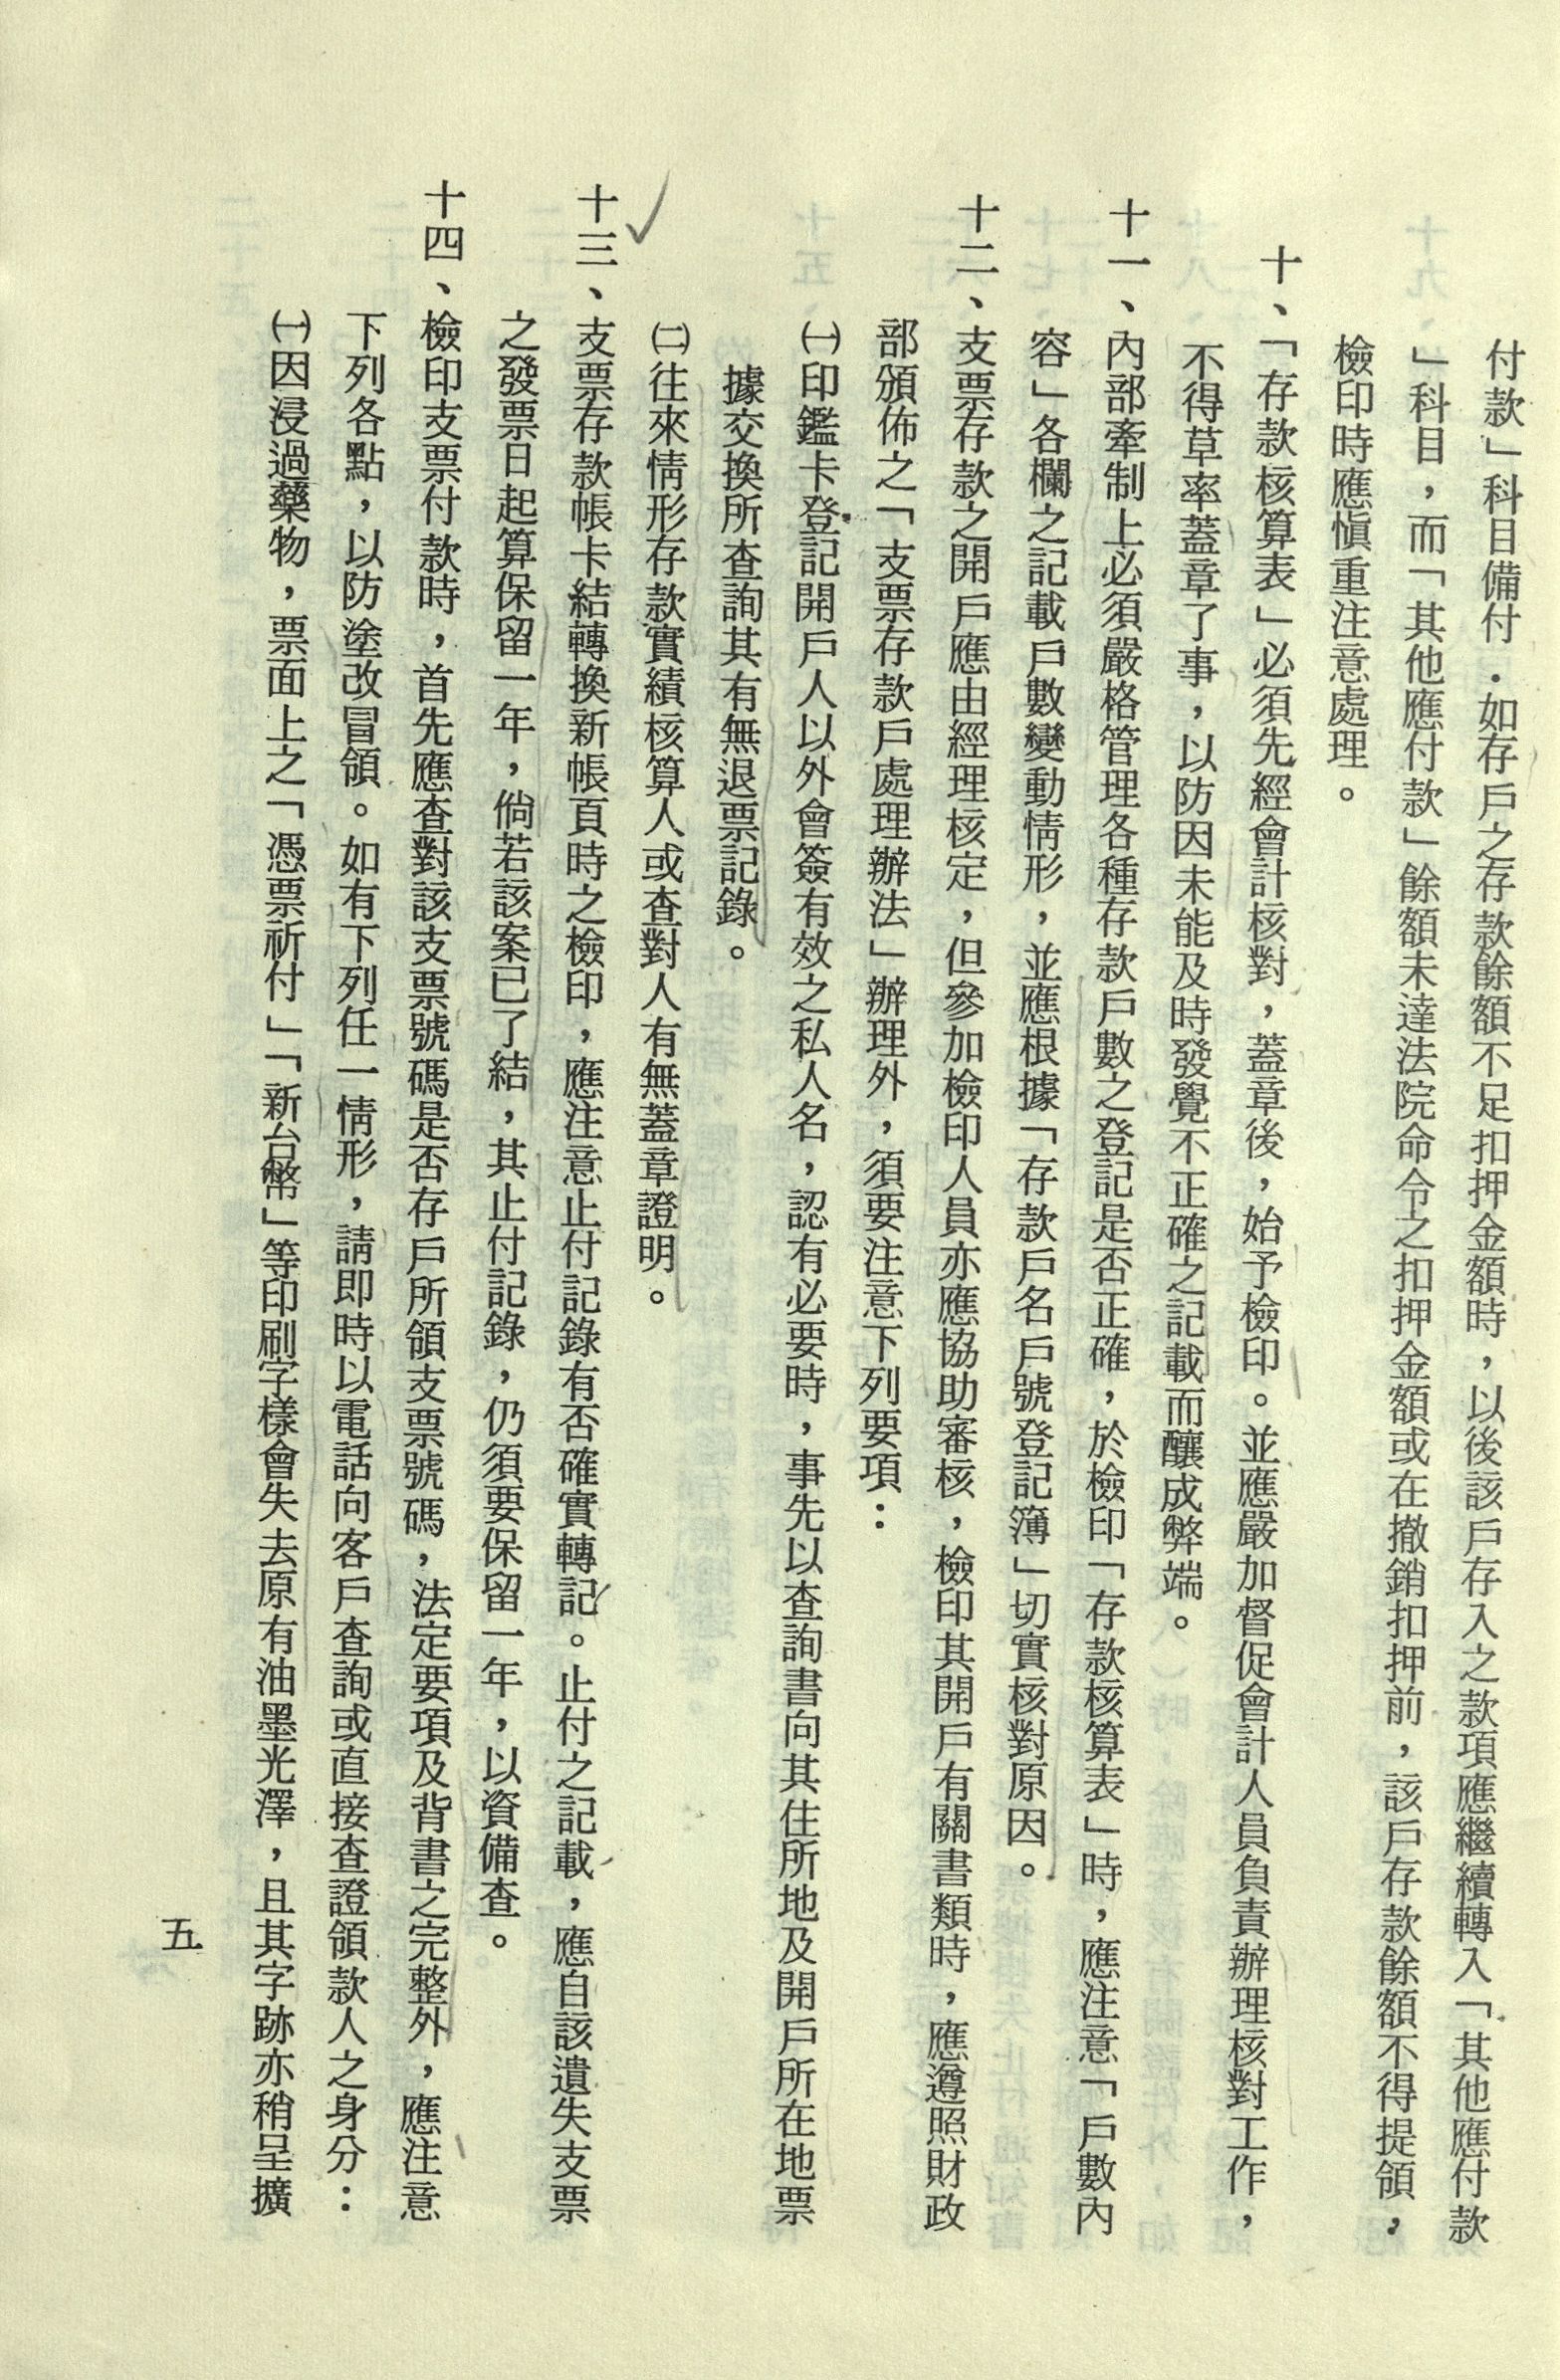 付款」科目備付．如存戶之存款餘額不足扣押金額時，以後該戶存入之款項應繼續轉入「其他應付款
」科目，而「其他應付款」餘額未達法院命令之扣押金額或在撤銷扣押前，該戶存款餘額不得提領，
檢印時應慎重注意處理。
十、「存款核算表」必須先經會計核對，蓋章後，始予檢印。並應嚴加督促會計人員負責辦理核對工作，
不得草率蓋章了事，以防因未能及時發覺不正確之記載而釀成弊端。
十一、內部牽制上必須嚴格管理各種存款戶數之登記是否正確，於檢印「存款核算表」時，應注意「戶數內
容」各欄之記載戶數變動情形，並應根據「存款戶名戶號登記簿」切實核對原因。
十二、支票存款之開戶應由經理核定，但參加檢印人員亦應協助審核，檢印其開戶有關書類時，應遵照財政
部頒佈之「支票存款戶處理辦法」辦理外，須要注意下列要項：
㈠印鑑卡登記開戶人以外會簽有效之私人名，認有必要時，事先以查詢書向其住所地及開戶所在地票
據交換所查詢其有無退票記錄。
㈡往來情形存款實績核算人或查對人有無蓋章證明。
十三、支票存款帳卡結轉換新帳頁時之檢印，應注意止付記錄有否確實轉記。止付之記載，應自該遺失支票
之發票日起算保留一年，倘若該案已了結，其止付記錄，仍須要保留一年，以資備查。
十四、檢印支票付款時，首先應查對該支票號碼是否存戶所領支票號碼，法定要項及背書之完整外，應注意
下列各點，以防塗改冒領。如有下列任一情形，請即時以電話向客戶查詢或直接查證領款人之身分：
㈠因浸過藥物，票面上之「憑票祈付」「新台幣」等印刷字樣會失去原有油墨光澤，且其字跡亦稍呈擴
五